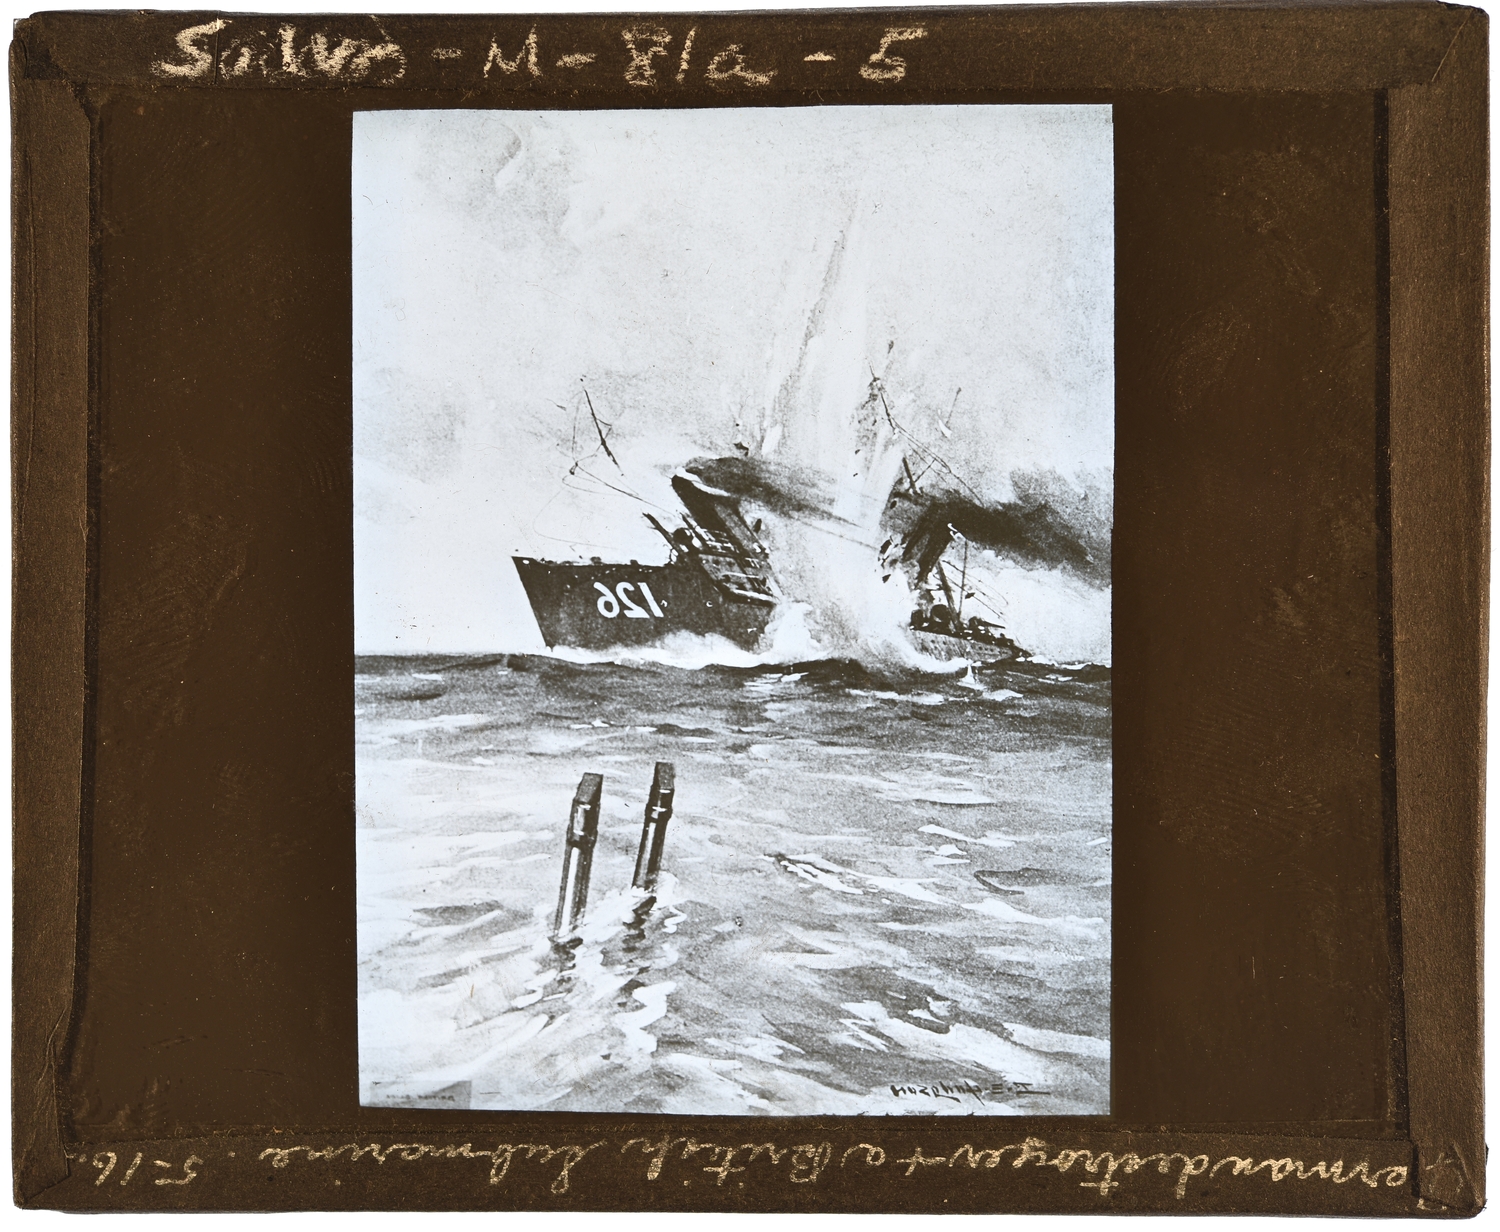 - M - 81a - 5
126
German destroyer + a British Submarine. 5-16-